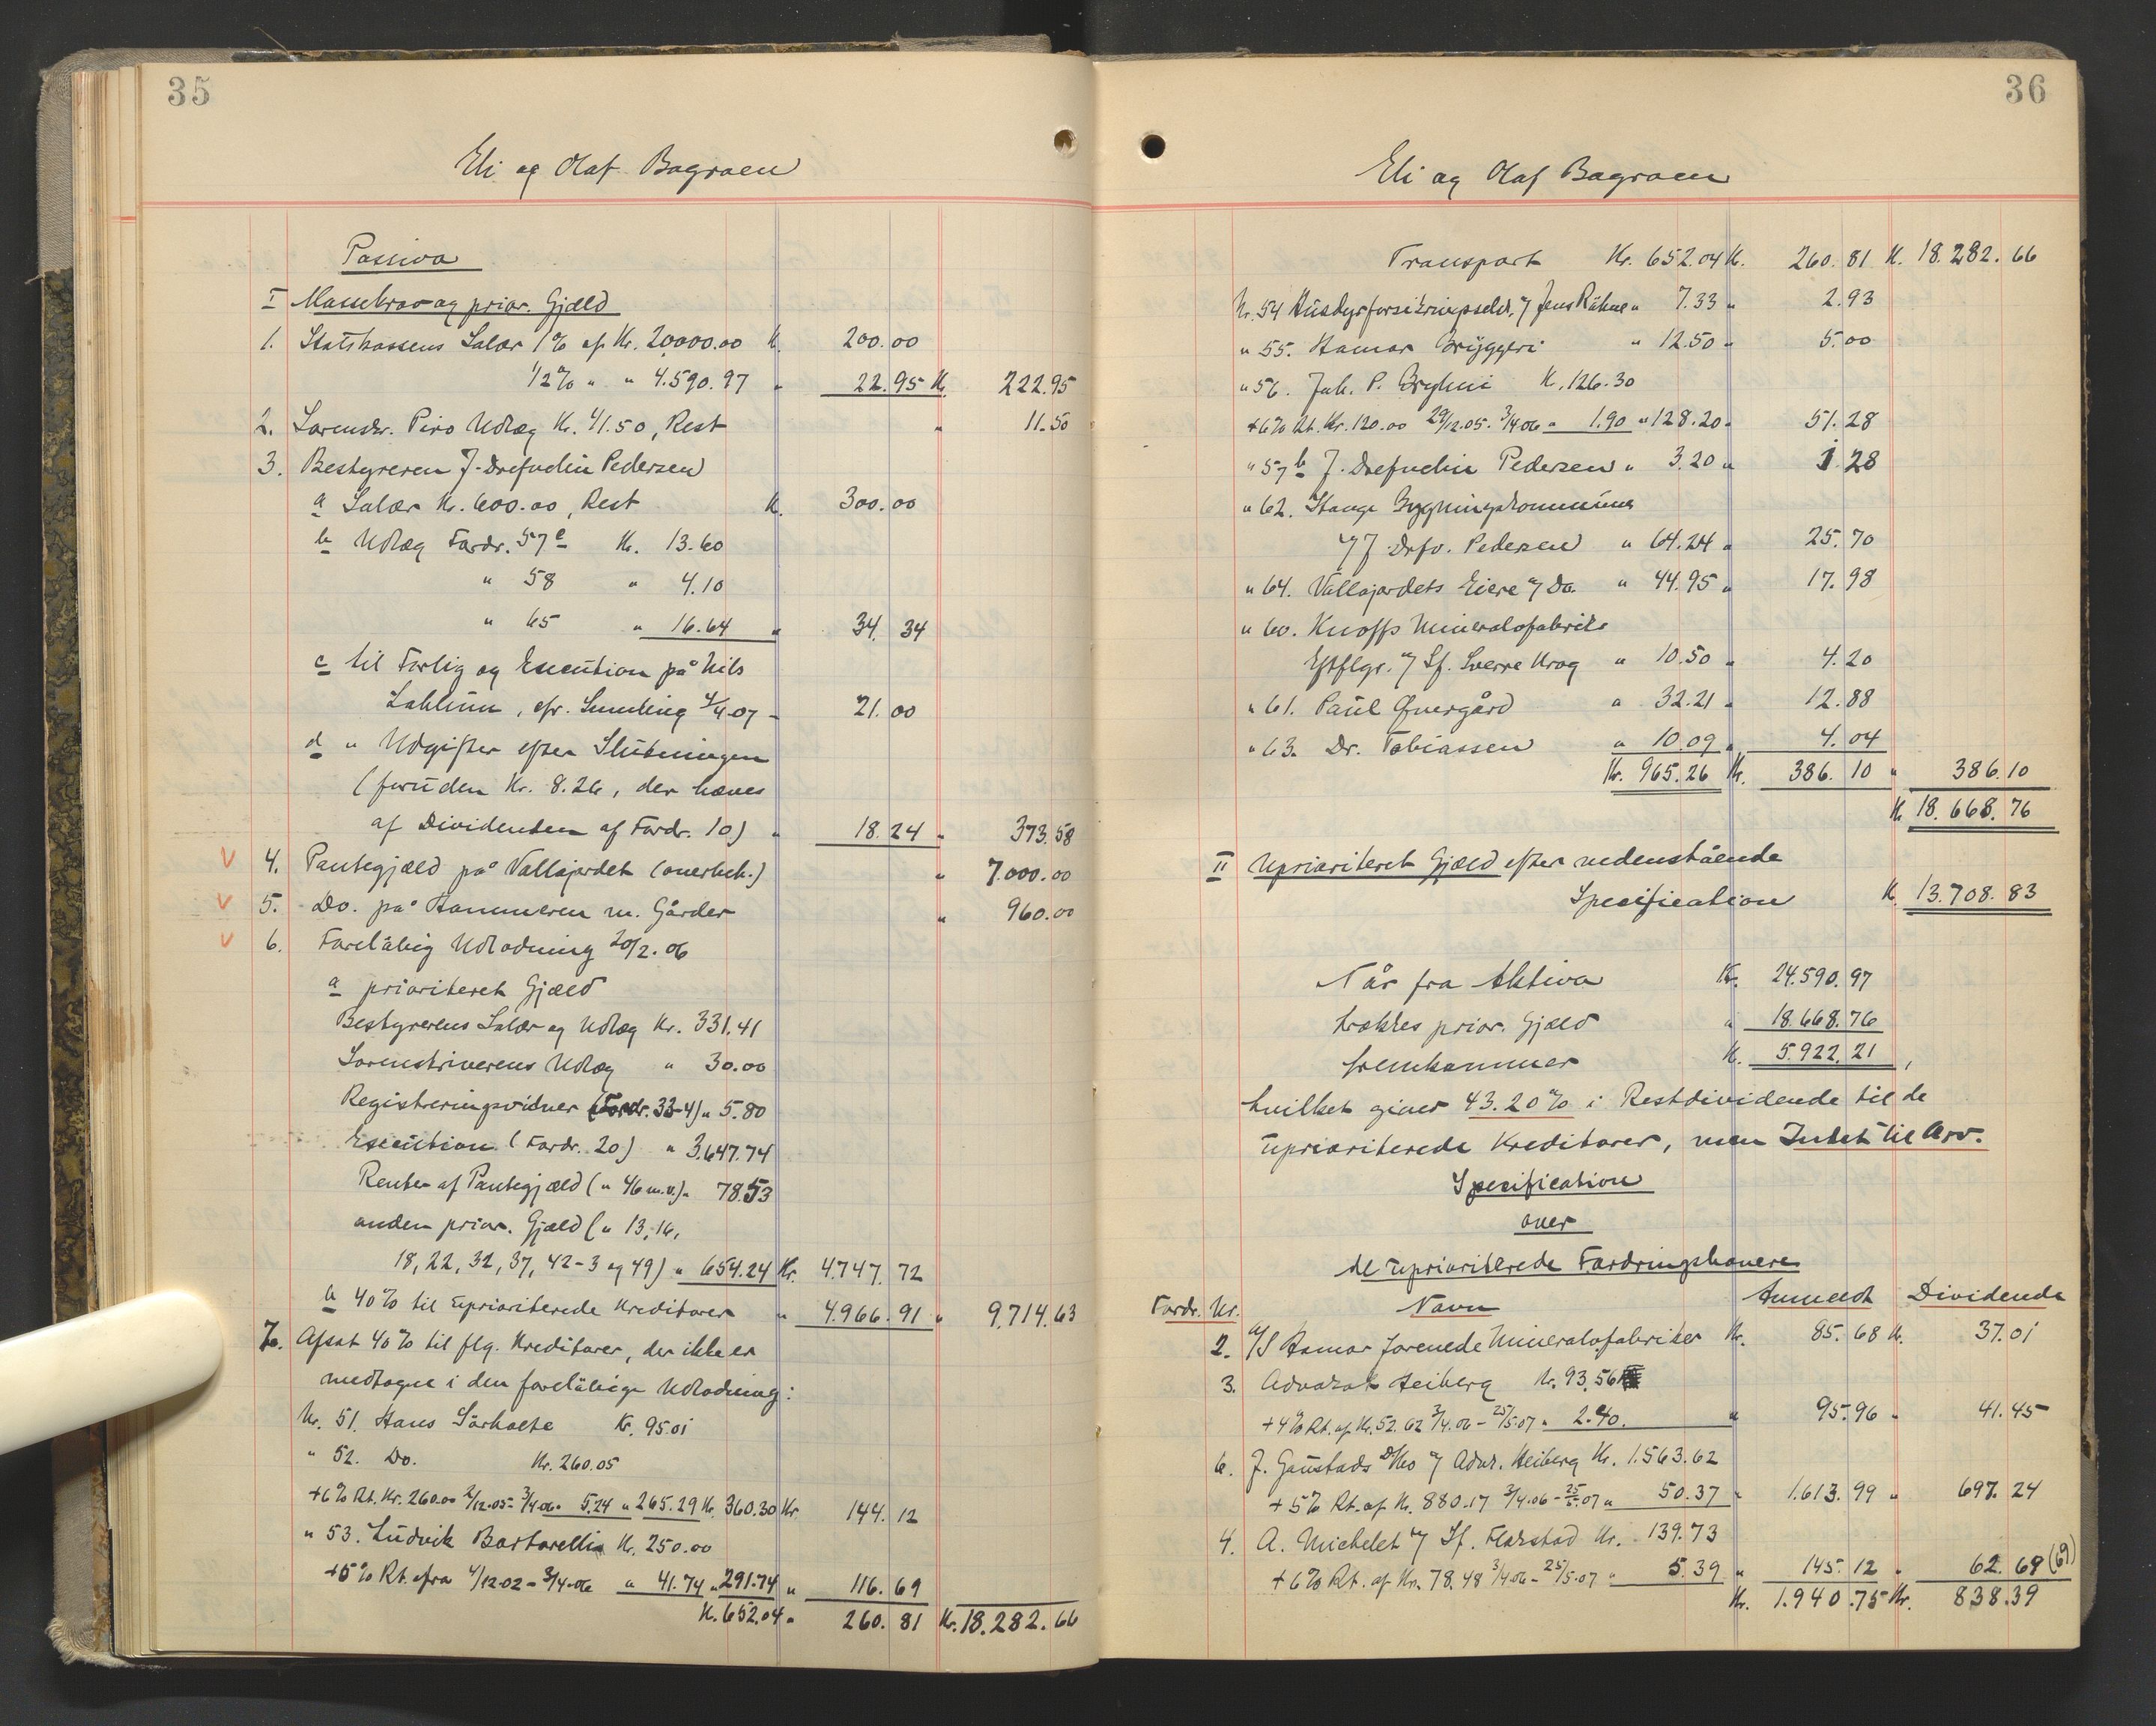 35
Eli og Olaf Bagroen
Passiva
I Massekrav og prior. Gjæld
1. Statskassens Salær 1% af Kr. 20,000.00 K. 200.00
1/2% " " 4.590.97 " 22.95 K. 222.95
2. Sorenskr. Piro Udlæg Kr. 41.50, Rest " 11.50
3. Bestyreren J. Drefvelin Pedersen
a Salær Kr. 600.00, Rest K. 300.00
b Udlæg Fordr. 57c Kr. 13.60
" 58 " 4.10
" 65 " 16.64 " 34.34
c til Forlig og Execution på Nils
Lahlum, efr. Samling 4/4-07 - 21.00
d " Udgifter efter Slutningen
(foruden Kr. 8.26, der hæves
af Dividenden af Fordr. 10) " 18.24 " 373.58
V 4. Pantegjæld på Vallajordet (overbeh.) " 7.000.00
V 5. Do. på Hammeren m. Gårder " 960.00
V 6. Foreløbig Udlodning 20/2.06
a prioriteret Gjæld
Bestyrerens Salær og Udlæg Kr. 331.41
Sorenskriverens Udlæg " 30.00
Registreringsvidner (Fordr. 33-4) " 5.80
Execution (Fordr. 20) " 3.647.74
Renter af Pantegjæld (" 46 m.v.) " 78.53
anden prior. Gjæld (" 13, 16,
18, 22, 32, 37, 42-3 og 49) " 654.24 Kr. 4.747.72
b 40% til uprioriterede Kreditorer " 4.966.91 " 9.714.63
7. Afsat 40% til flg. Kreditorer, der ikke er
medtagne i den foreløbige Udlodning:
Nr. 51. Hans Sørholte Kr. 95.01
" 52. Do. Kr. 260.05
+6% Rt. Kr. 260.00 2/12.05-3/4.06 " 5.24 " 265.29 Kr. 360.30 Kr. 144.12
" 53. Ludvik Bartarelli Kr. 250.00
+5% Rt. fra 4/12-02-3/4-06 " 41.74 " 291.74 " 116.69
K. 652.04 " 260.81 Kr. 18.282.66
36
Eli og Olaf Bagroen
Transport Kr. 652.04 K. 260.81 K. 18.282.66
Nr. 54 Husdyrforsikringsselsk. v/ Jens Råhne " 7.33 " 2.93
" 55. Hamar Bryggeri " 12.50 " 5.00
" 56. Joh. P. Bryhni K. 126.30
+6% Rt. Kr. 120.00 29/12.05-3/4.06 " 1.90 " 128.20 " 51.28
" 57b J. Drefvelin Pedersen " 3.20 " 1.28
" 62. Stange Bygningskommune
v/ J. Drfv. Pedersen " 64.24 " 25.70
" 64. Vallajordets Eiere v/ Do. " 44.95 " 17.98
" 60. Knoffs Mineralvfabriks
Eftflgr. v/ Sf. Sverre Krog " 10.50 " 4.20
" 61. Paul Øvergård " 32.21 " 12.88
" 63. Dr. Tobiassen " 10.09 " 4.04
Kr. 965.26 Kr. 386.10 " 386.10
K. 18.668.76
II Uprioriteret Gjæld efter nedenstående
Specification K. 13.708.83
Når fra Aktiva Kr. 24.590.97
trækkes prior. Gjæld " 18.668.76
fremkommer K. 5.922.21,
hvilket giver 43.20% i Restdividende til de
uprioriterede Kreditorer, men Intet til Arv.
Specification
over
de upriorterede Fordringshavere
Fordr. Nr. Navn Anmeldt Dividende
2. A/S Hamar forenede Mineralvfabriker Kr. 85.68 K. 37.01
3. Advokat Heiberg Kr. 93.56
+4% Rt. af Kr. 52.62 3/4.06-25/5.07 " 2.40. " 95.96 " 41.45
6. J. Gaustads D/bo v/ Adv. Heiberg Kr. 1.563.62
+5% Rt. af K. 880.17 3/4.06-25/5.07 " 50.37 " 1.613.99 " 697.24
4. A. Michelet v/ Sf. Flakstad Kr. 139.73
+6% Rt. af Kr. 78.48 3/4.06-25/5.07 " 5.39 " 145.12 " 62.68 (69)
Kr. 1.940.75 Kr. 838.39